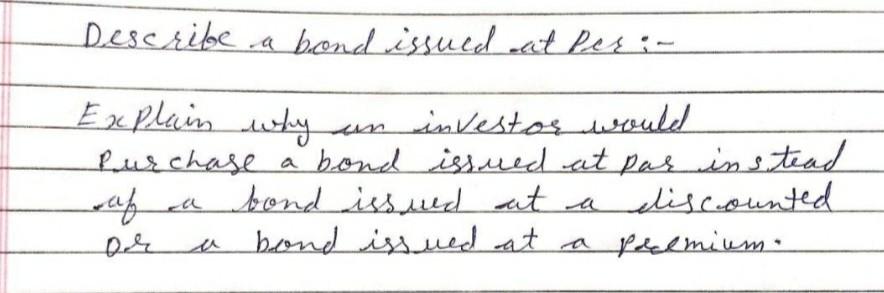 Describe a bond issued at Per :-
Explain why an investor would
Purchase a bond issued at par instead
of a bond issued at a discounted
or a bond issued at a premium.